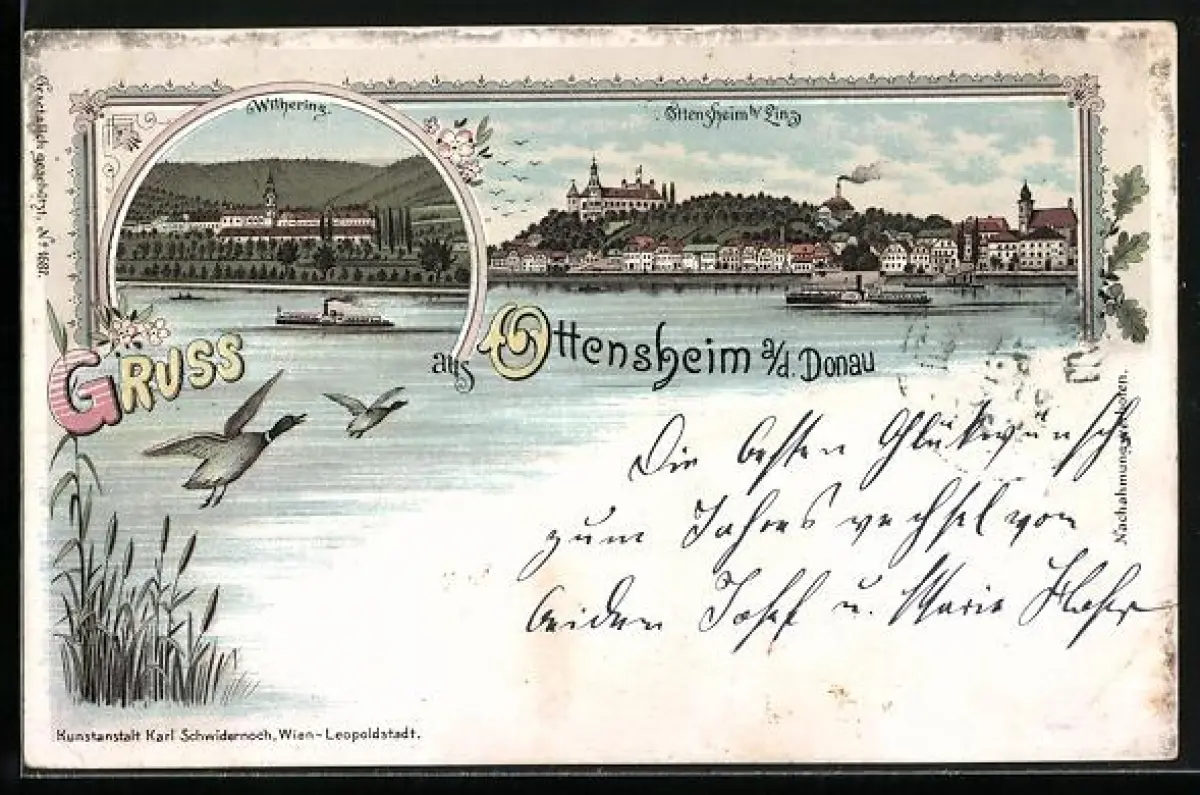 Wilhering.
Ottensheim b/ Linz
Gesetzlich geschützt. No
GRUSS
aus Ottensheim a/d. Donau
Die besten Glückwünsche
zum Jahreswechsel von
beiden Josef u. Marie
Nachahmung verboten.
Kunstanstalt Karl Schwidernoch, Wien-Leopoldstadt.